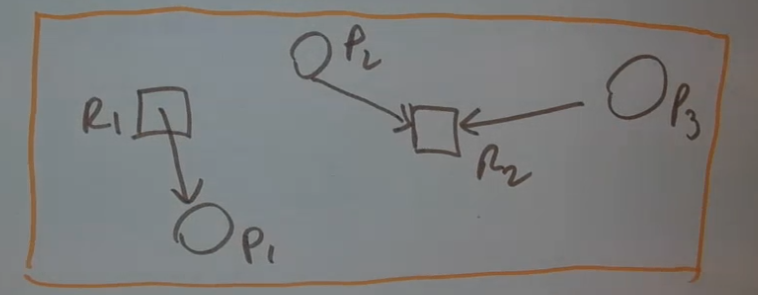 P2
R1
P3
R2
P1